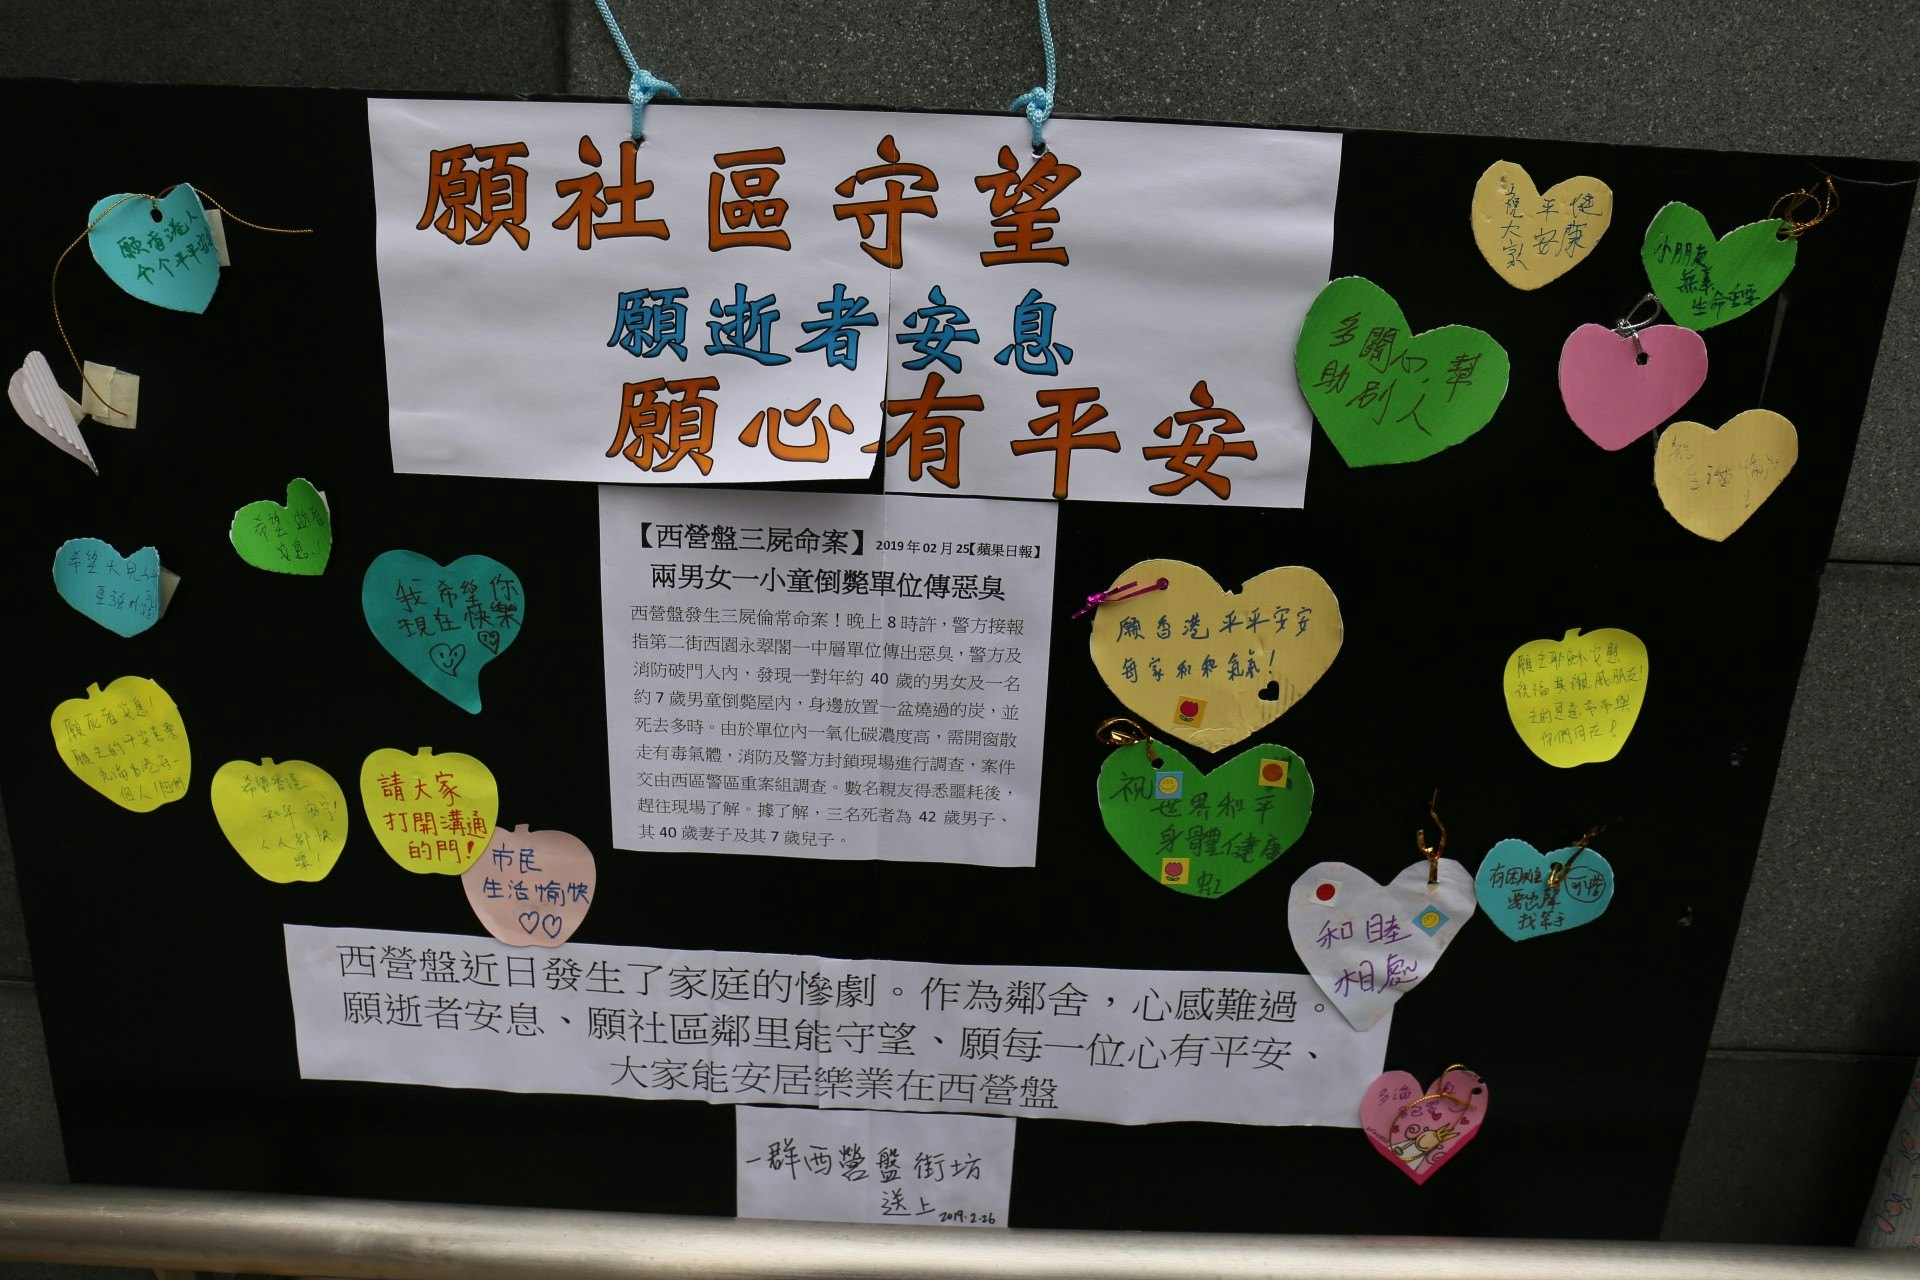 願社區守望
願逝者安息
願心有平安
【西營盤三屍命案】2019年02月25【蘋果日報】
兩男女一小童倒斃單位傳惡臭
西營盤發生三屍倫常命案！晚上8時許，警方接報
指第二街西園永翠閣一中層單位傳出惡臭，警方及
消防破門入內，發現一對年約 40 歲的男女及一名
約7歲男童倒斃屋內，身邊放置一盆燒過的炭，並
死去多時。由於單位內一氧化碳濃度高，需開窗散
走有毒氣體，消防及警方封鎖現場進行調查，案件
交由西區警區重案組調查。數名親友得悉噩耗後，
趕往現場了解。據了解，三名死者為 42 歲男子、
其40歲妻子及其7歲兒子。
西營盤近日發生了家庭的慘劇。作為鄰舍，心感難過。
願逝者安息、願社區鄰里能守望、願每一位心有平安、
大家能安居樂業在西營盤
一群西營盤街坊
送上
2019.2.26
願香港人
希望逝者
安息！
我希望你
現在快樂
願死者安息！
希望香港
和平安宁！
人人都快
樂！
請大家
打開溝通
的門！
市民
生活愉快
祝平健
大安康
家
小朋友
無辜
生命
多關心.幫
助別人
願香港平平安安
每家和和氣氣！
祝
世界和平
身體健康
虹
和睦
相處
有困難
要出聲
找幫手
你們同在！